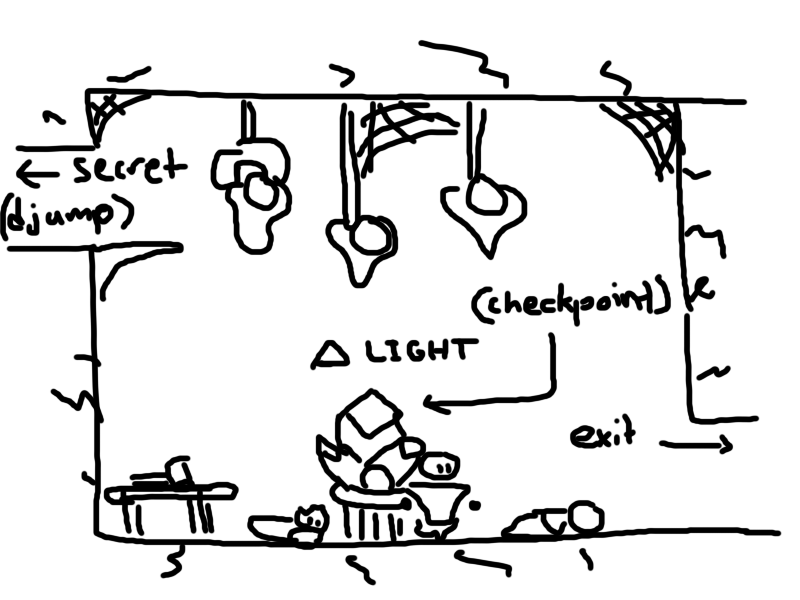 ← secret
(djump)
(checkpoint)
△ LIGHT
exit →